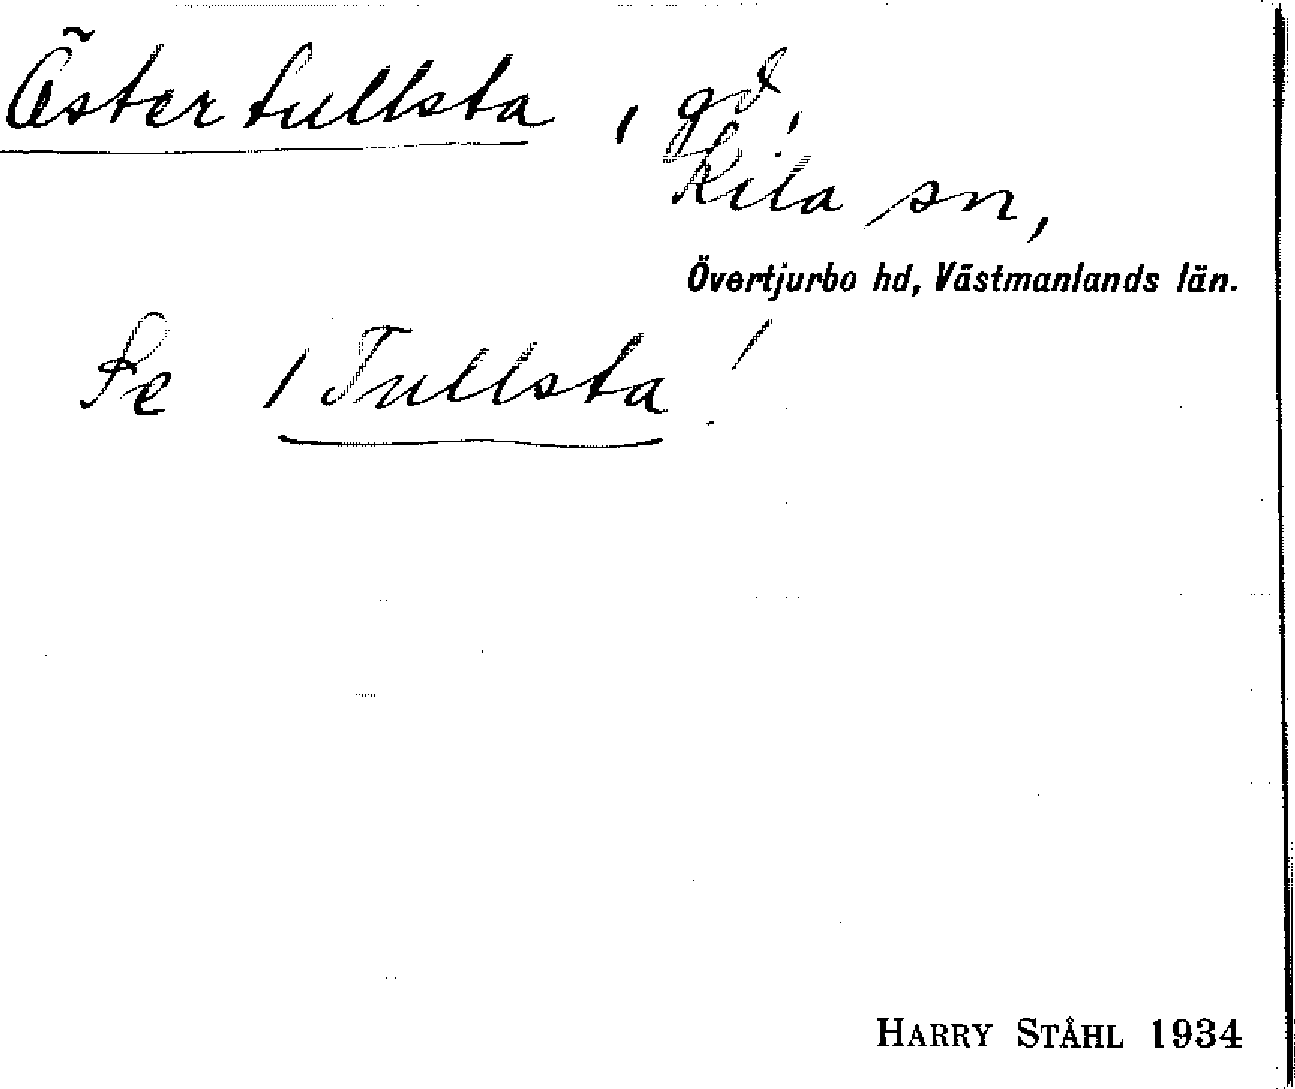 Östertullsta, gd,
Kila sn,
Övertjurbo hd, Västmanlands län.
Se 1 Tullsta!
HARRY STÅHL 1934